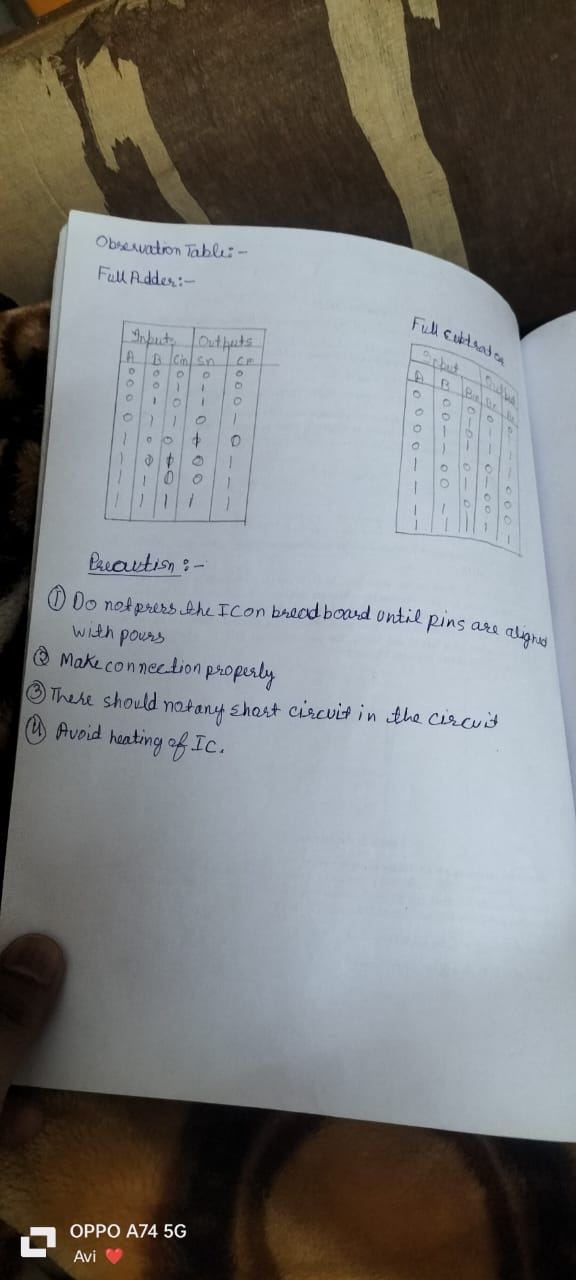 Observation Table:-
Full Adder:-
Inputs Outputs
A B Cin Sn Cn
0 0 0 0 0
0 0 1 1 0
0 1 0 1 0
0 1 1 0 1
1 0 0 1 0
1 0 1 0 1
1 1 0 0 1
1 1 1 1 1
Full Subtractor
Input Output
A B Bin
Precaution:-
① Do not press the IC on breadboard until pins are aligned
with pours
② Make connection properly
③ There should not any short circuit in the circuit
④ Avoid heating of IC.
OPPO A74 5G
Avi ❤️